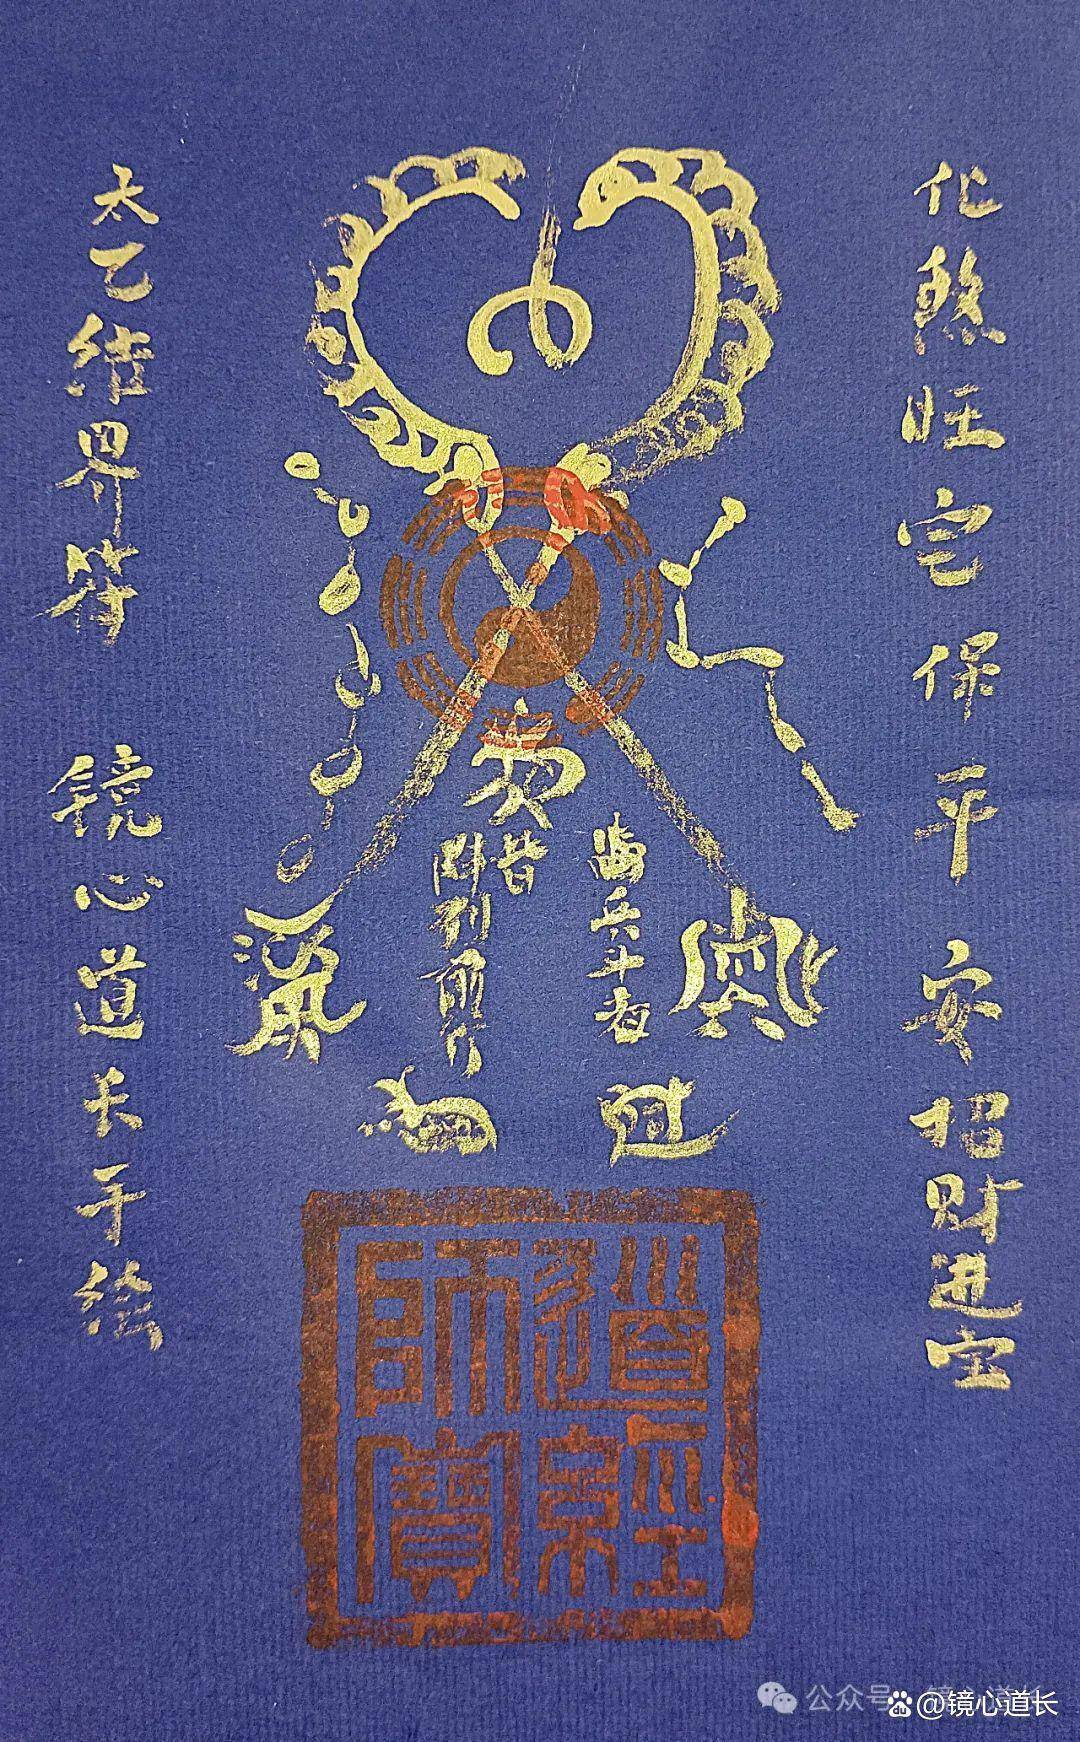 化煞旺宅保平安招财进宝
临兵斗者
皆
阵列前行
太乙结界符 镜心道长手绘
道经師寶
公众号
@镜心道长